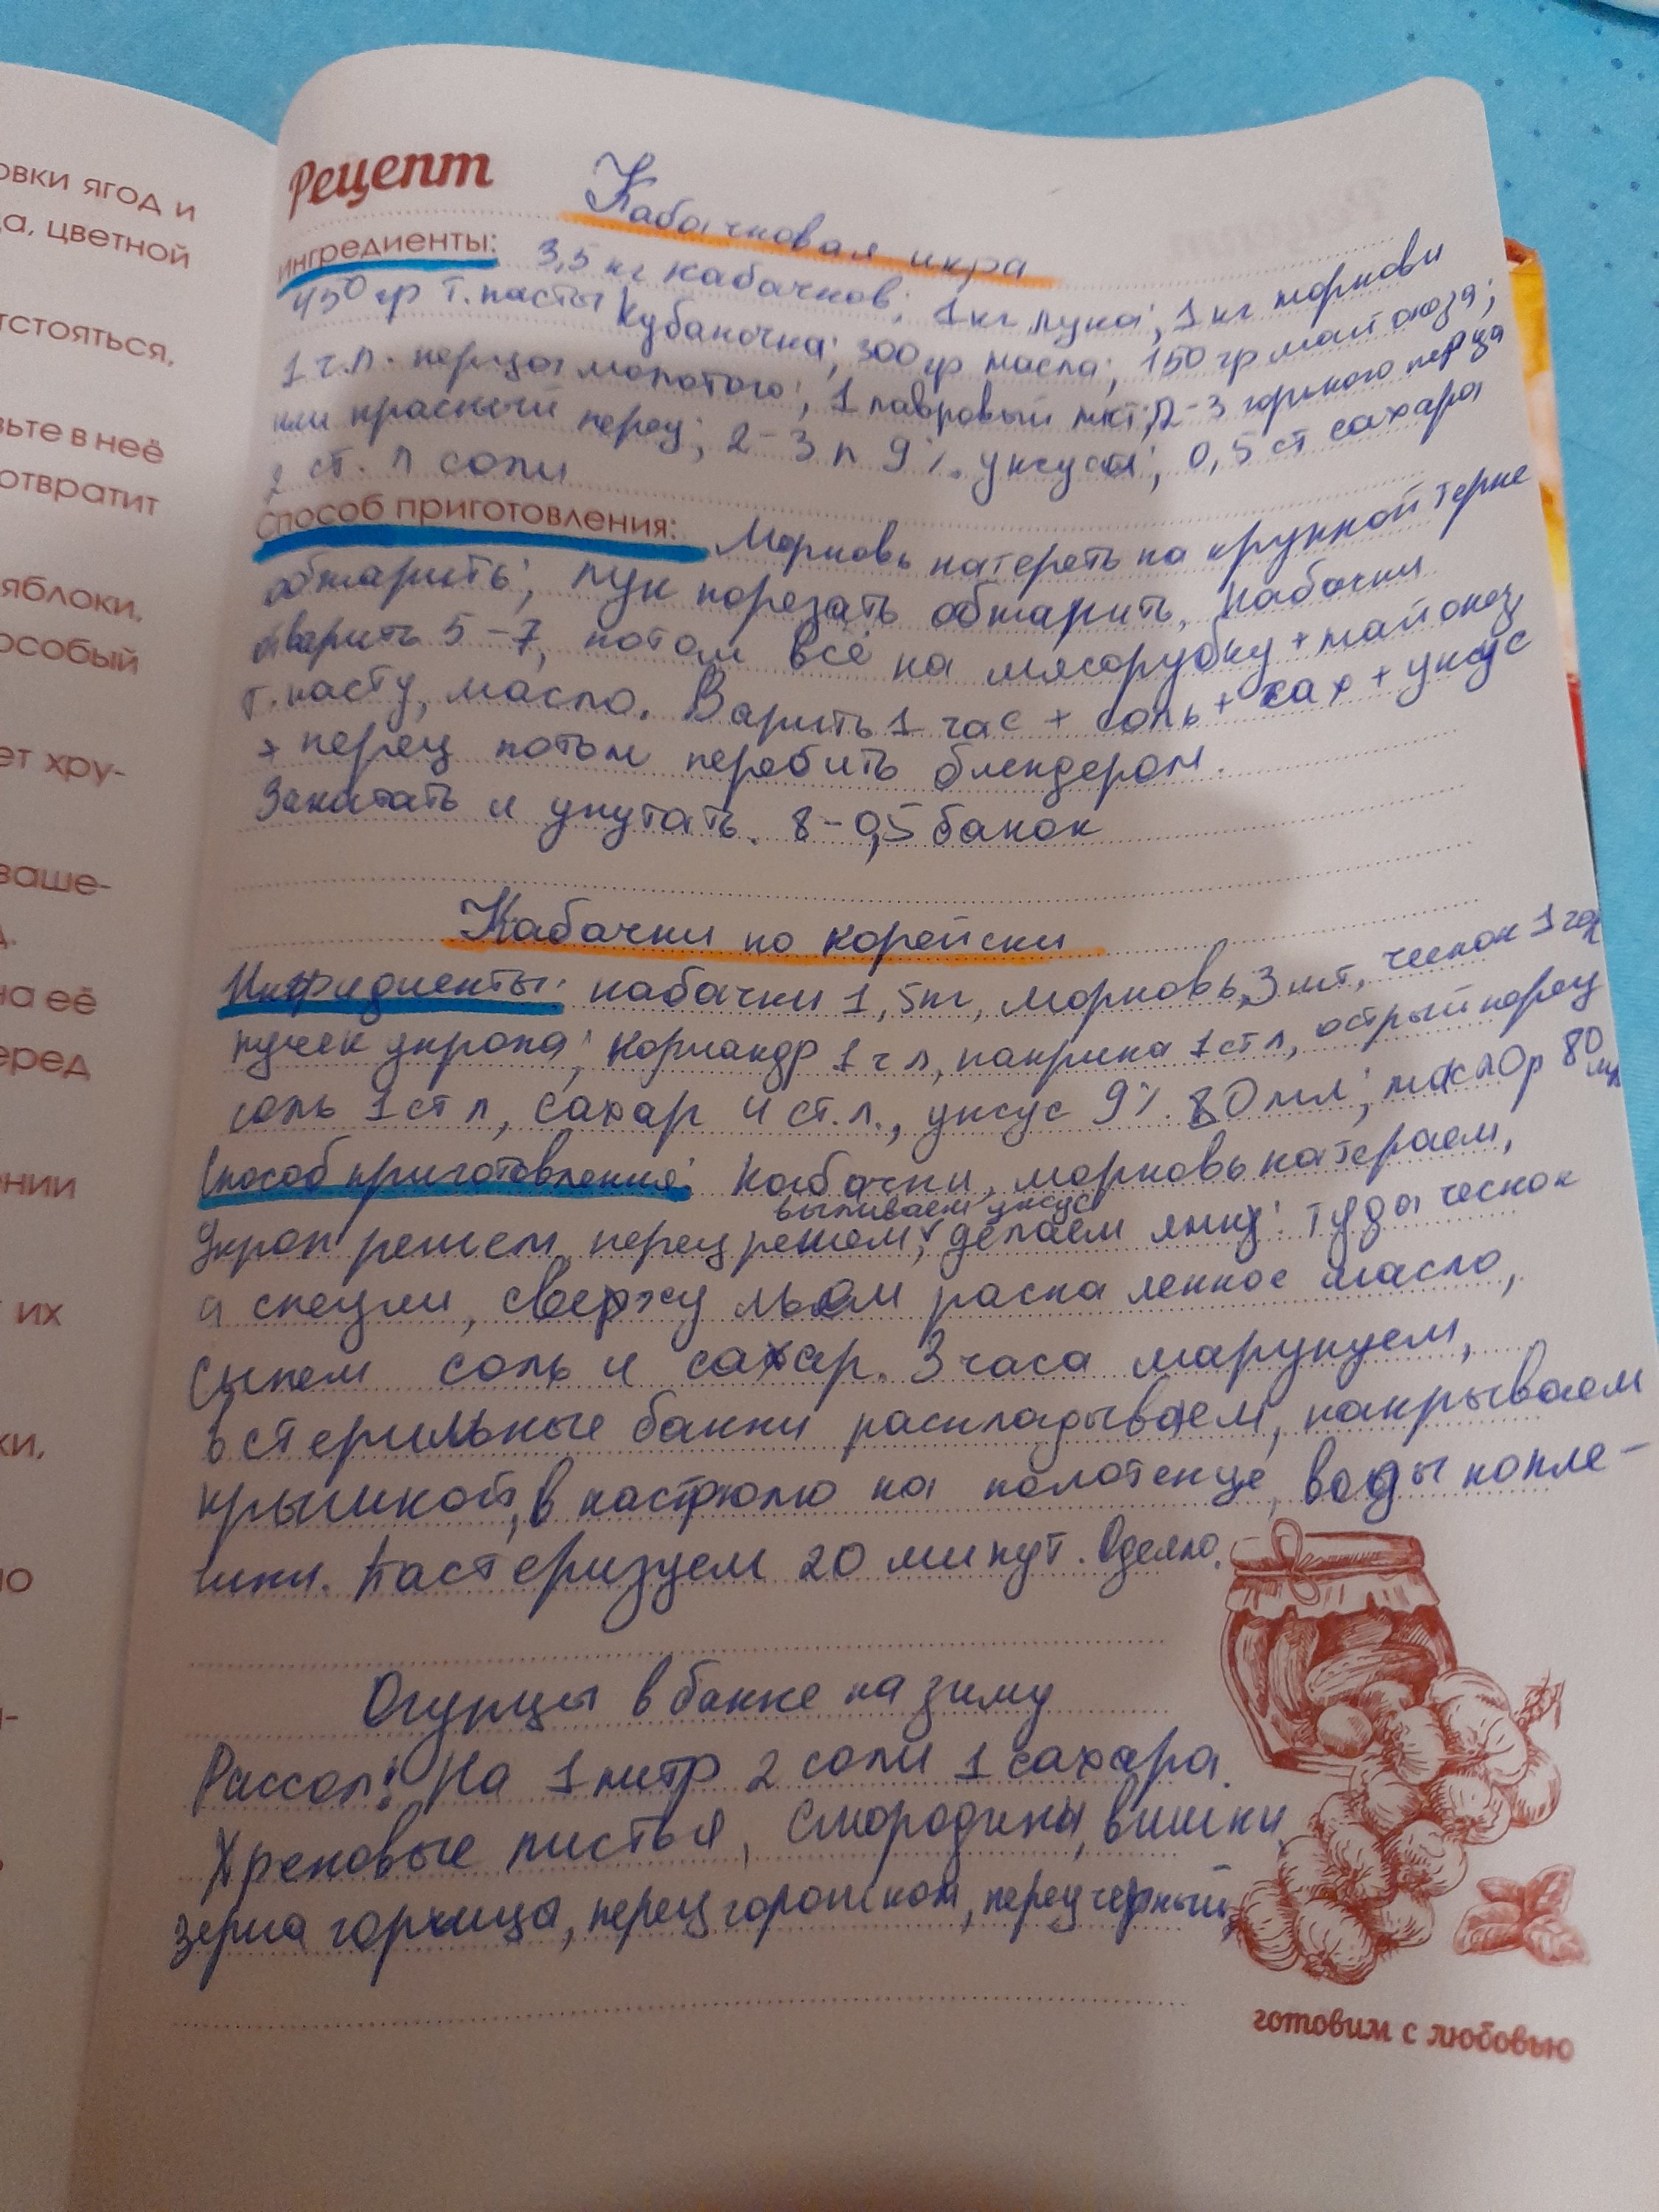 овки ягод и
ца, цветной
тстояться,
вьте в неё
отвратит
яблоки,
особый
ет хру-
ваше-
на её
еред
нии
их
ки,
но
Рецепт
Кабачковая икра
Ингредиенты: 3,5 кг кабачков; 1 кг лука; 1 кг моркови
450 гр т. пасты Кубаночка; 300 гр масла; 150 гр майонеза;
1 ч.л. перца молотого; 1 лавровый лист; 2-3 горького перца
или красный перец; 2-3 л 9% уксуса; 0,5 ст сахара
2 ст. л соли
Способ приготовления: Морковь натереть на крупной терке
обжарить; лук порезать обжарить, кабачки
отварить 5-7, потом всё на мясорубку + майонез,
т. пасту, масло. Варить 1 час + соль + сах + уксус
+ перец потом перебить блендером.
Закатать и укутать. 8-0,5 банок
Кабачки по корейски
Ингридиенты: кабачки 1,5кг, морковь 3 шт, чеснок 1 гол
пучек укропа; кориандр 1 ч л, паприка 1 ст л, острый перец
соль 1 ст л, сахар 4 ст.л., уксус 9% 80 мл; масло р 80 мл
Способ приготовления: Кабачки, морковь натераем,
выливаем уксус
Укроп режем, перец режем, делаем ямку: туда чеснок
и специи, сверху льем раскаленное масло,
сыпем соль и сахар. 3 часа марунуем,
в стерильные банки раскладываем, накрываем
крышкой, в кастрюлю на полотенце, воды по пле-
чики. Пастеризуем 20 минут. Одеяло.
Огурцы в банке на зиму
Рассол: На 1 литр 2 соли 1 сахара.
Хреновые листья, Смородины, вишни,
зерна горчица, перец горошком, перец черный,
готовим с любовью